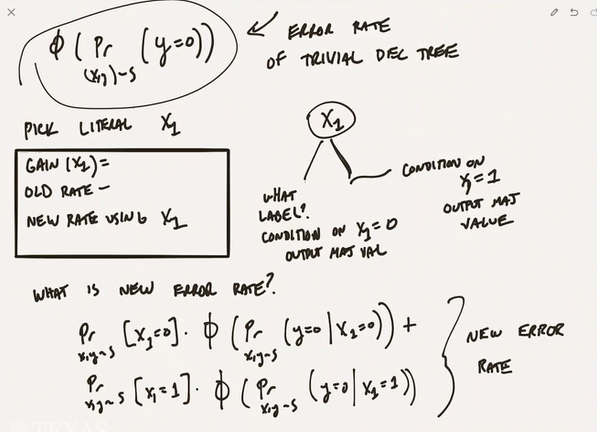 ϕ ( Pr (y=0))
(x,y)~S
← ERROR RATE
OF TRIVIAL DEC TREE
PICK LITERAL X₁
GAIN (X₁) =
OLD RATE –
NEW RATE USING X₁
X₁
WHAT
LABEL?
CONDITION ON X₁=0
OUTPUT MAJ VAL
CONDITION ON
X₁=1
OUTPUT MAJ
VALUE
WHAT IS NEW ERROR RATE?
Pr [X₁=0] · ϕ ( Pr (y=0|X₁=0)) +
x,y~S x,y~S
Pr [X₁=1] · ϕ ( Pr (y=0|X₁=1))
x,y~S x,y~S
NEW ERROR
RATE
TEXAS